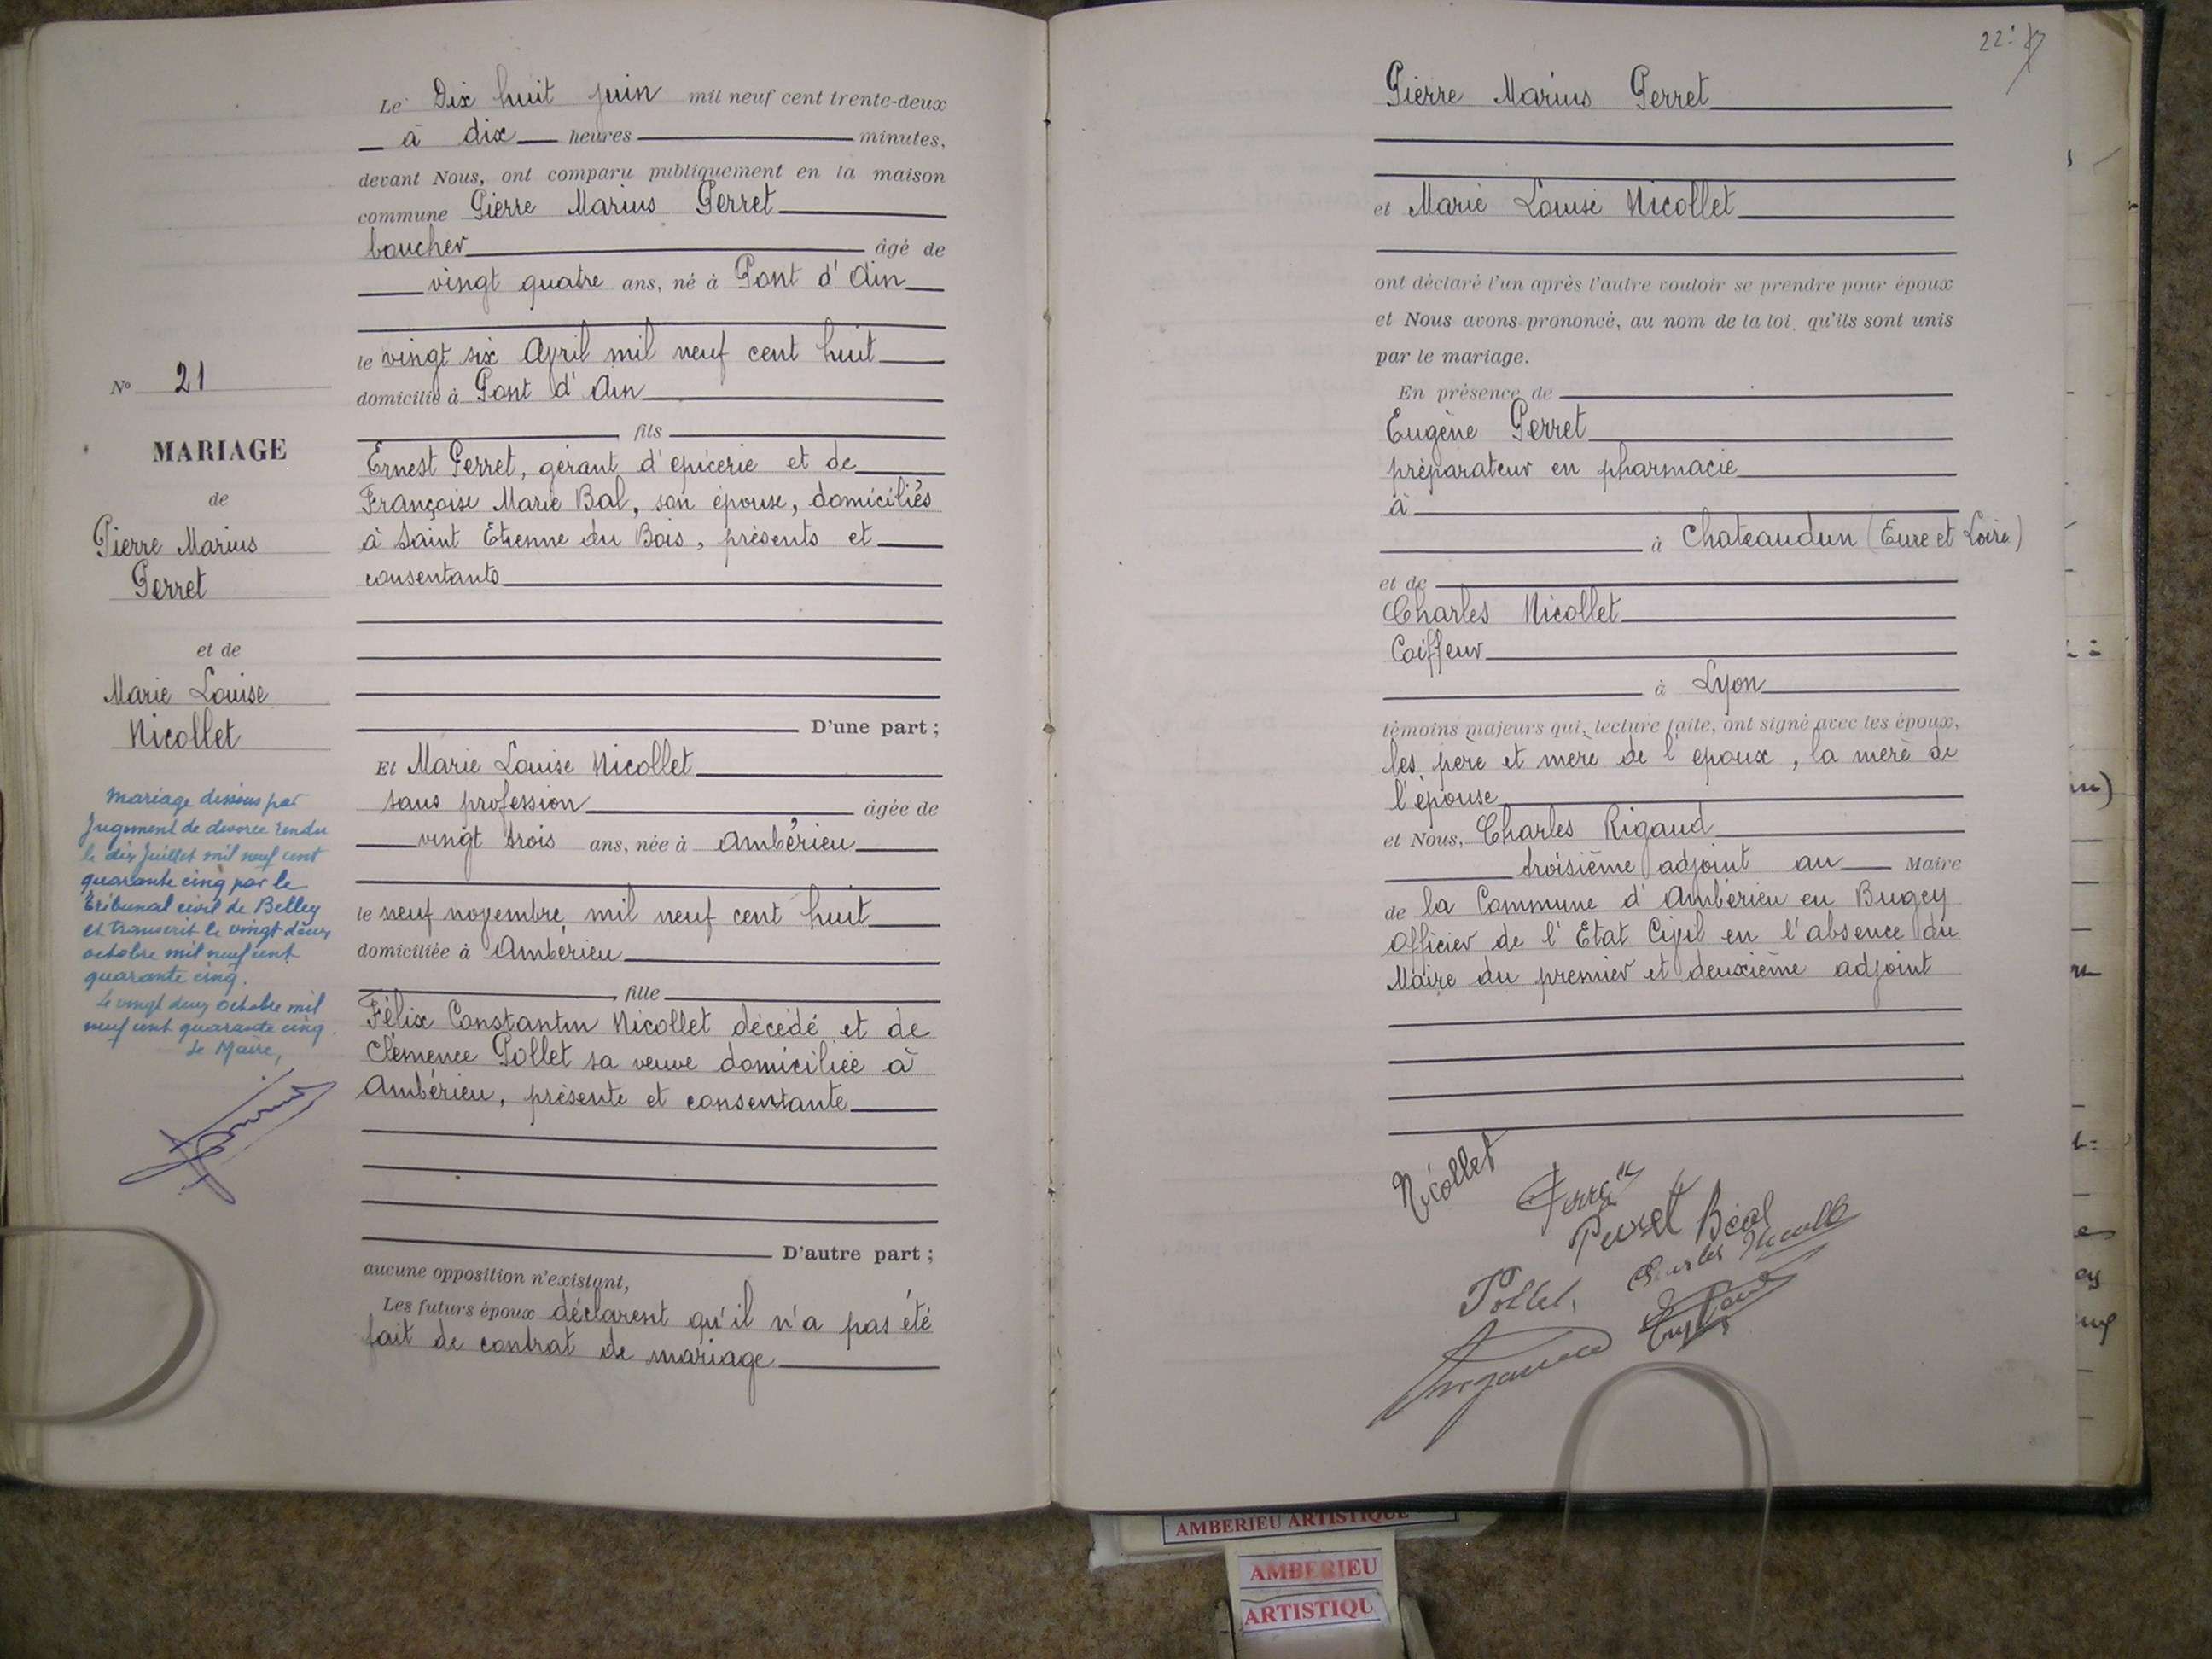 Le Dix huit juin mil neuf cent trente-deux
à dix heures minutes,
devant Nous, ont comparu publiquement en la maison
commune Pierre Marius Perret
boucher âgé de
vingt quatre ans, né à Pont d'Ain
le vingt six Avril mil neuf cent huit
domicilié à Pont d'Ain
fils
Ernest Perret, gérant d'épicerie et de
Françoise Marie Bal, son épouse, domiciliés
à Saint Etienne du Bois, présents et
consentants
D'une part ;
Et Marie Louise Nicollet
sans profession âgée de
vingt trois ans, née à Ambérieu
le neuf novembre mil neuf cent huit
domiciliée à Ambérieu
fille
Félix Constantin Nicollet décédé et de
Clémence Pollet sa veuve domiciliée à
Ambérieu, présente et consentante
D'autre part ;
aucune opposition n'existant,
Les futurs époux déclarent qu'il n'a pas été
fait de contrat de mariage
N° 21
MARIAGE
de
Pierre Marius
Perret
et de
Marie Louise
Nicollet
Mariage dissous par
Jugement de divorce rendu
le dix Juillet mil neuf cent
quarante cinq par le
Tribunal civil de Belley
et transcrit le vingt deux
octobre mil neuf cent
quarante cinq.
Le vingt deux octobre mil
neuf cent quarante cinq.
Le Maire,
22
Pierre Marius Perret
et Marie Louise Nicollet
ont déclaré l'un après l'autre vouloir se prendre pour époux
et Nous avons prononcé, au nom de la loi, qu'ils sont unis
par le mariage.
En présence de
Eugène Perret
préparateur en pharmacie
à
à Chateaudun (Eure et Loire)
et de
Charles Nicollet
Coiffeur
à Lyon
témoins majeurs qui, lecture faite, ont signé avec les époux,
les père et mère de l'époux, la mère de
l'épouse
et Nous, Charles Rigaud
troisième adjoint au Maire
de la Commune d'Ambérieu en Bugey
Officier de l'Etat Civil en l'absence du
Maire du premier et deuxième adjoint
Nicollet
Perret
Perret Béal
Charles Nicollet
Pollet
AMBERIEU ARTISTIQUE
AMBERIEU
ARTISTIQU